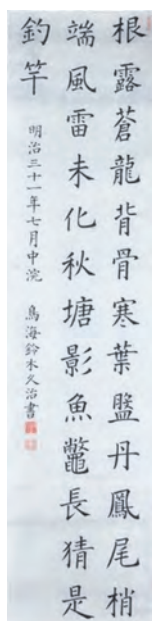 根露蒼龍背骨寒葉盤丹鳳尾梢
端風雷未化秋塘影魚鼈長猜是
釣竿
明治三十一年七月中浣 鳥海鈴木久治書